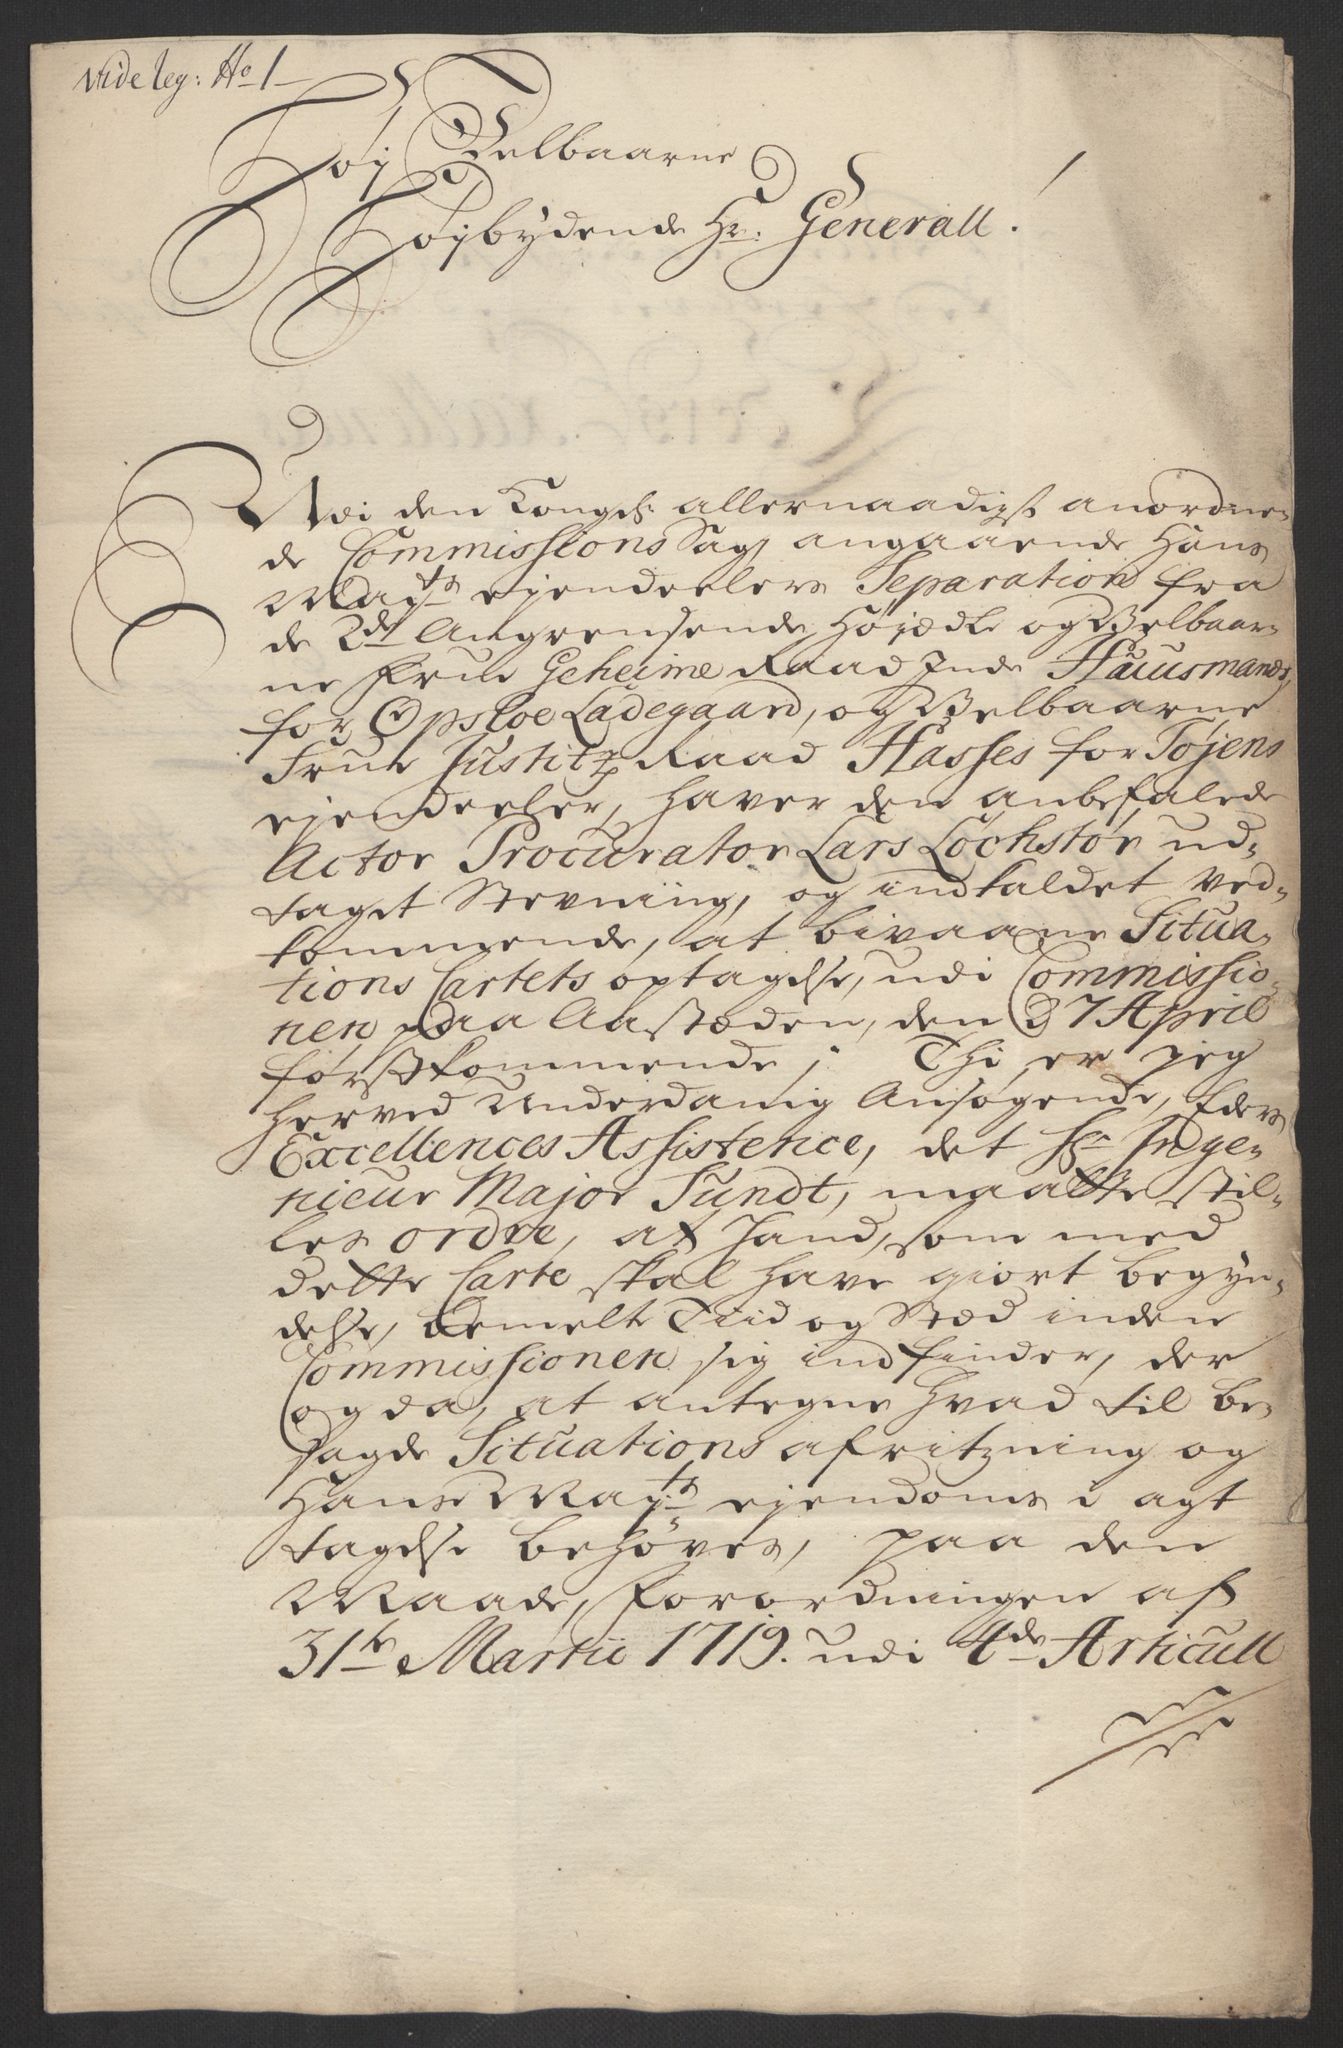 Vide leg: No 1
Høj Velbaarne
Højbydende Hr. Generall!
Udi den Kongel: allernaadigst anordne-
de Commissions Sag, angaaende Hans
Mayts ejendeelers Separation fra
de 2de Angrensende, Højædle og Velbaar-
ne Frue Geheime Raad Inde Hausmands,
for Opsloe Ladegaard, og Velbaarne
Frue Justitz Raad Hasses for Tøjens
ejendeeler, haver den anbefalede
Actor Procurator Lars Lochstør ud-
taget Stevning, og indkaldet ved-
kommende, at bivaane Situa-
tions Cartets optagelse, udi Commissio-
nen paa Aastæden, den 7 April
førstkommende; Thi er jeg
herved Underdanig Ansøgende, Eders
Excellences Assistence, det Hr Inge-
nieur Major Sundt, maatte stil-
les ordre, at hand, som med
dette Carte skal have giort begyn-
delse, bemelte Tiid og Stæd inden
Commissionen sig indfinder, der
og da, at antegne hvad til be-
sagde Situations afritzning og
Hans Mayts ejendoms i agt
tagelse behøves, paa den
Maade, Forordningen af
31te Martii 1719. udi 4de Articull